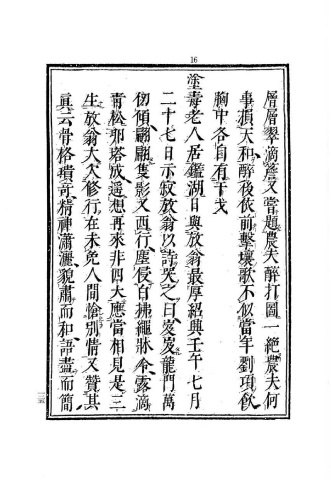 16
層層翠滴簷又嘗題農夫醉打圖一絶農夫何
事損天和醉後依前擊壤歌不似當年劉項飲
胸中各自有干戈
塗毒老人居鑑湖日與放翁最厚紹興壬午七月
二十七日示寂放翁以詩哭之曰岌岌龍門萬
仞傾翩翩隻影又西行塵侵白拂繩牀令露滴
青松那塔成遥想再來非四大應當相見是三
生放翁大欠修行在未免人間愴別情又贊其
眞云骨格瓌奇精神瀟灑貌肅而和語盡而簡